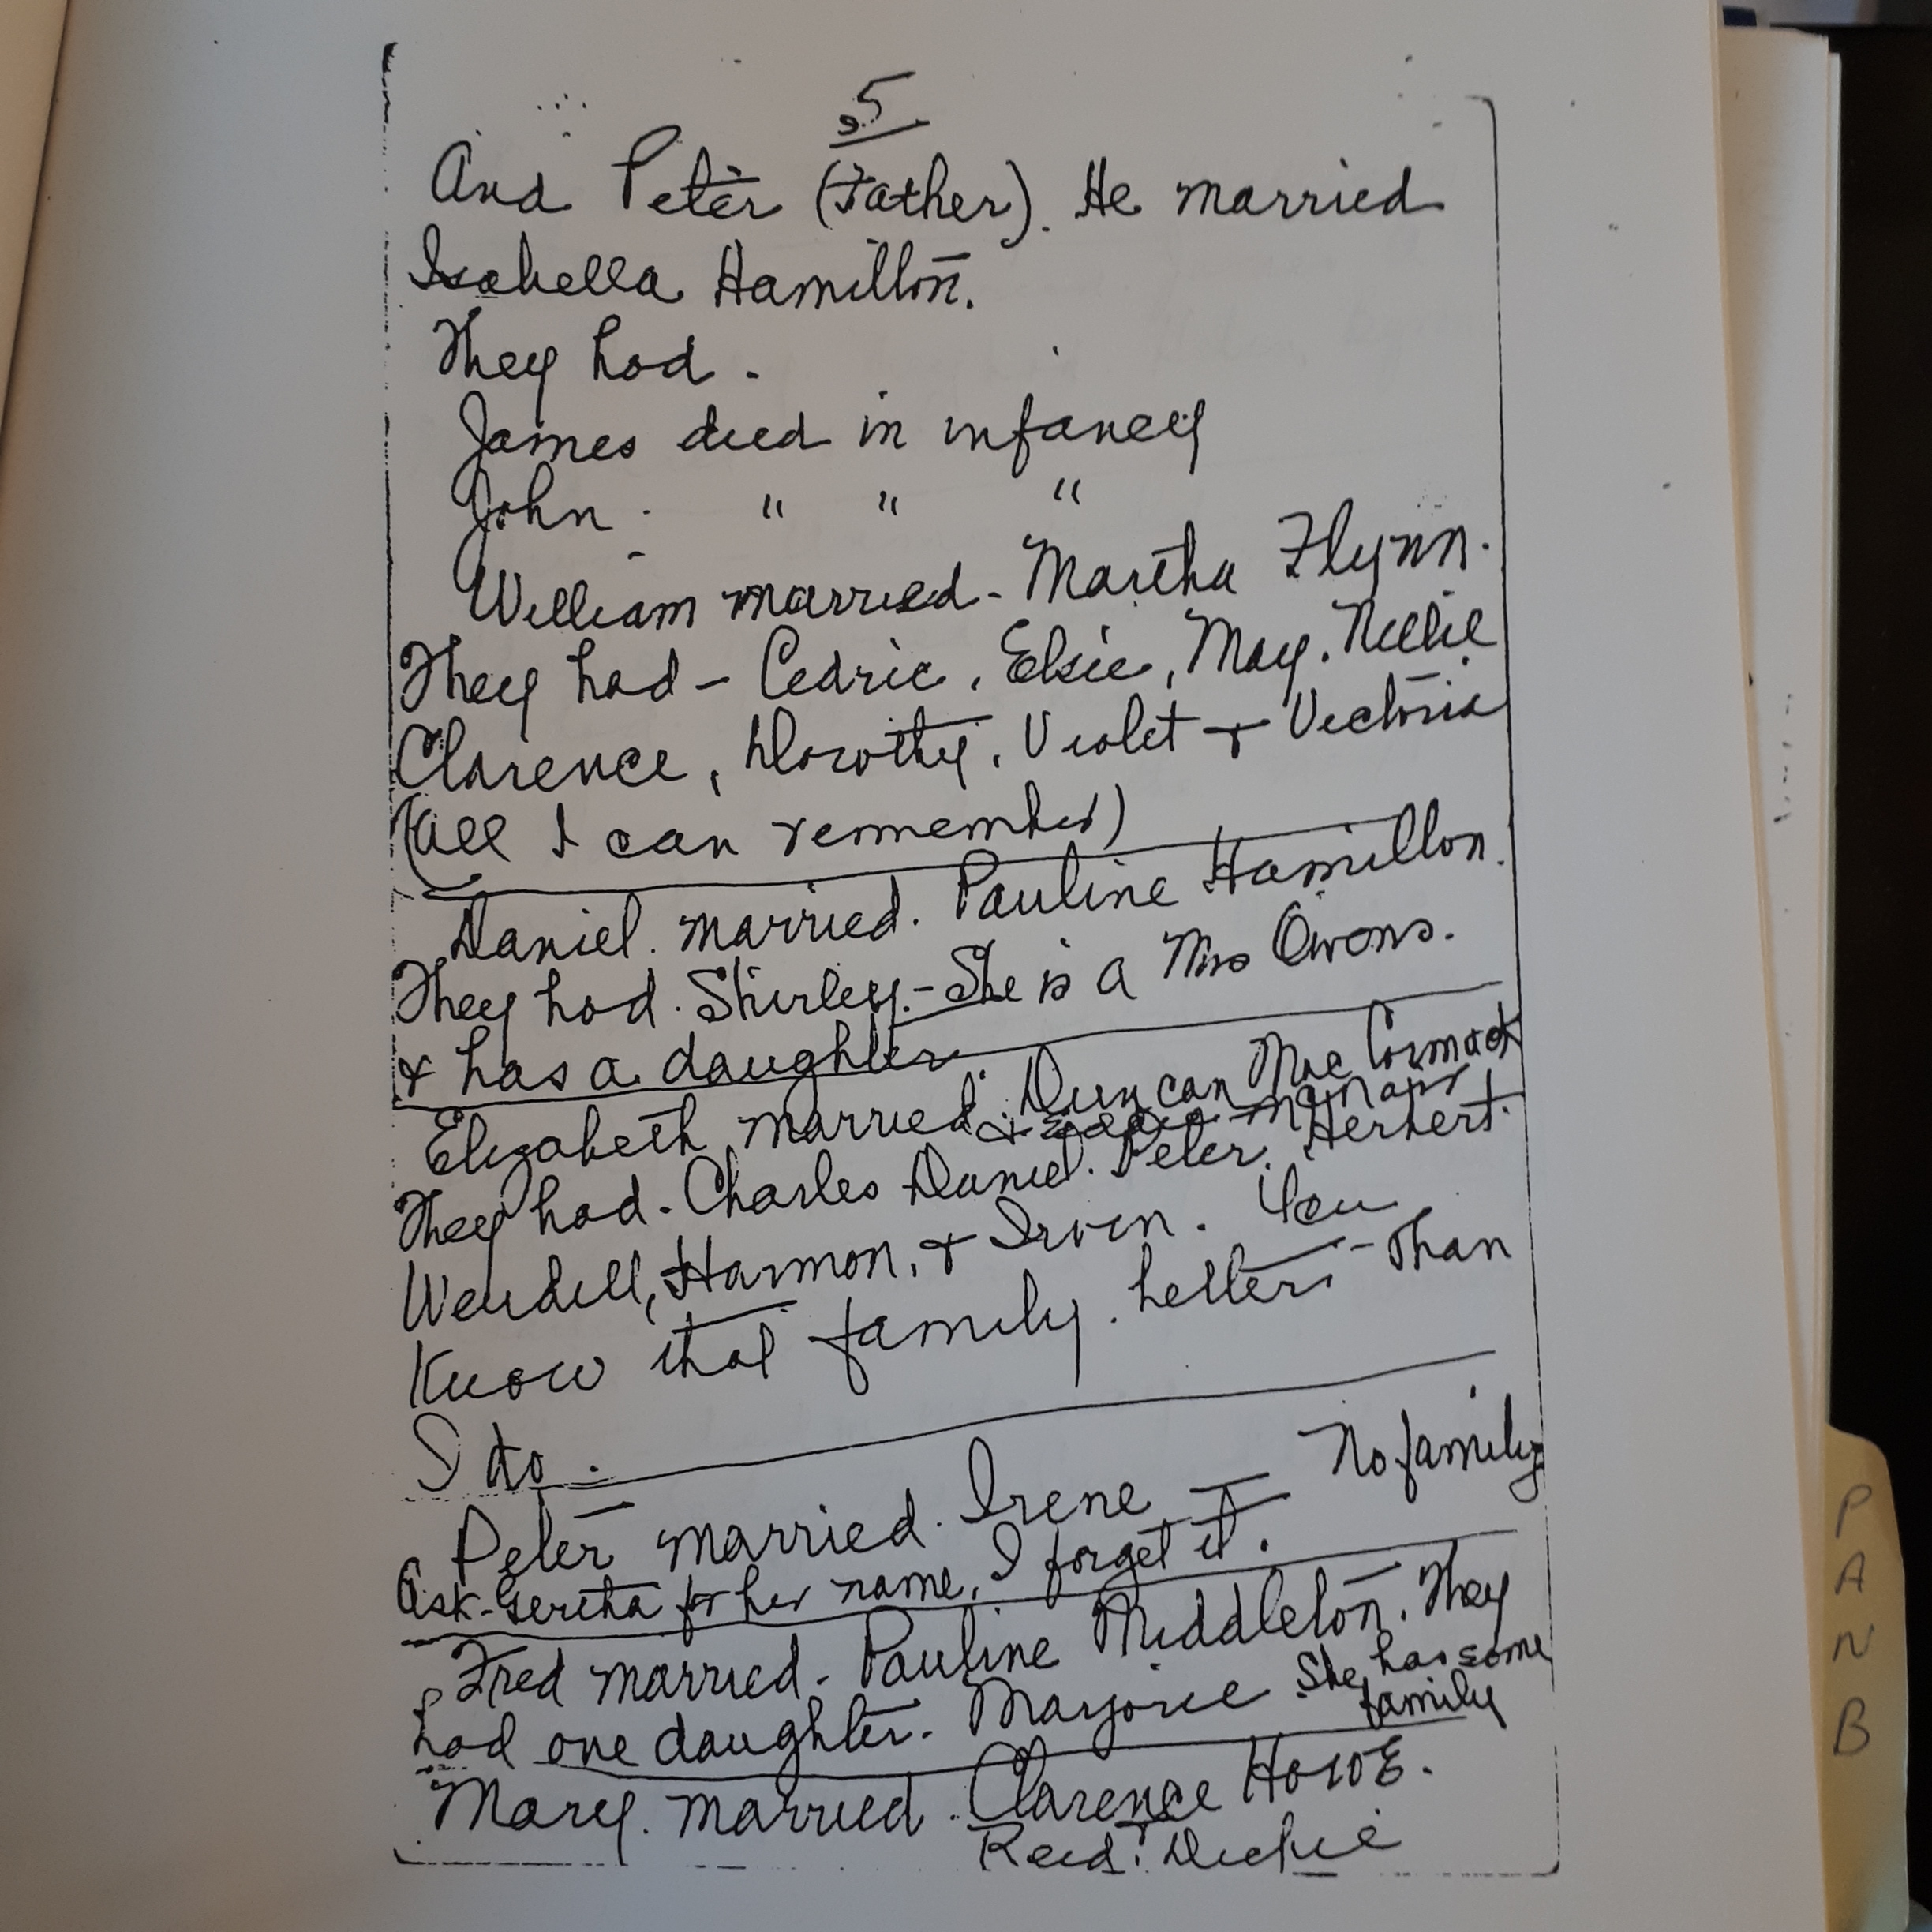 5
And Peter (Father). He married
Isabella Hamilton.
They had.
James died in infancy
John. " " "
William married - Martha Flynn.
They had - Cedric, Elsie, May. Nellie
Clarence, Dorothy, Violet + Victoria
(all I can remember)
Daniel. married. Pauline Hamilton.
They had. Shirley. - She is a Mrs Owens.
+ has a daughter
Elizabeth married. Duncan MacCormack
+
They had. Charles Daniel. Peter. Herbert.
Wendell, Harmon, + Irvin. You
Know that family. better than
I do.
Peter married. Irene — No family
Ask Gertha for her name, I forget it.
Fred married. Pauline Middleton. They
had one daughter. Marjorie She has some
family
Mary. married. Clarence Howe.
Reed
PANB